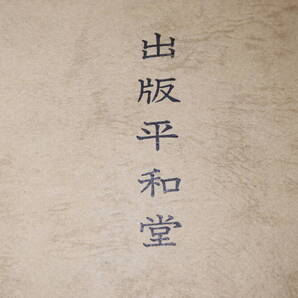 出版平和堂